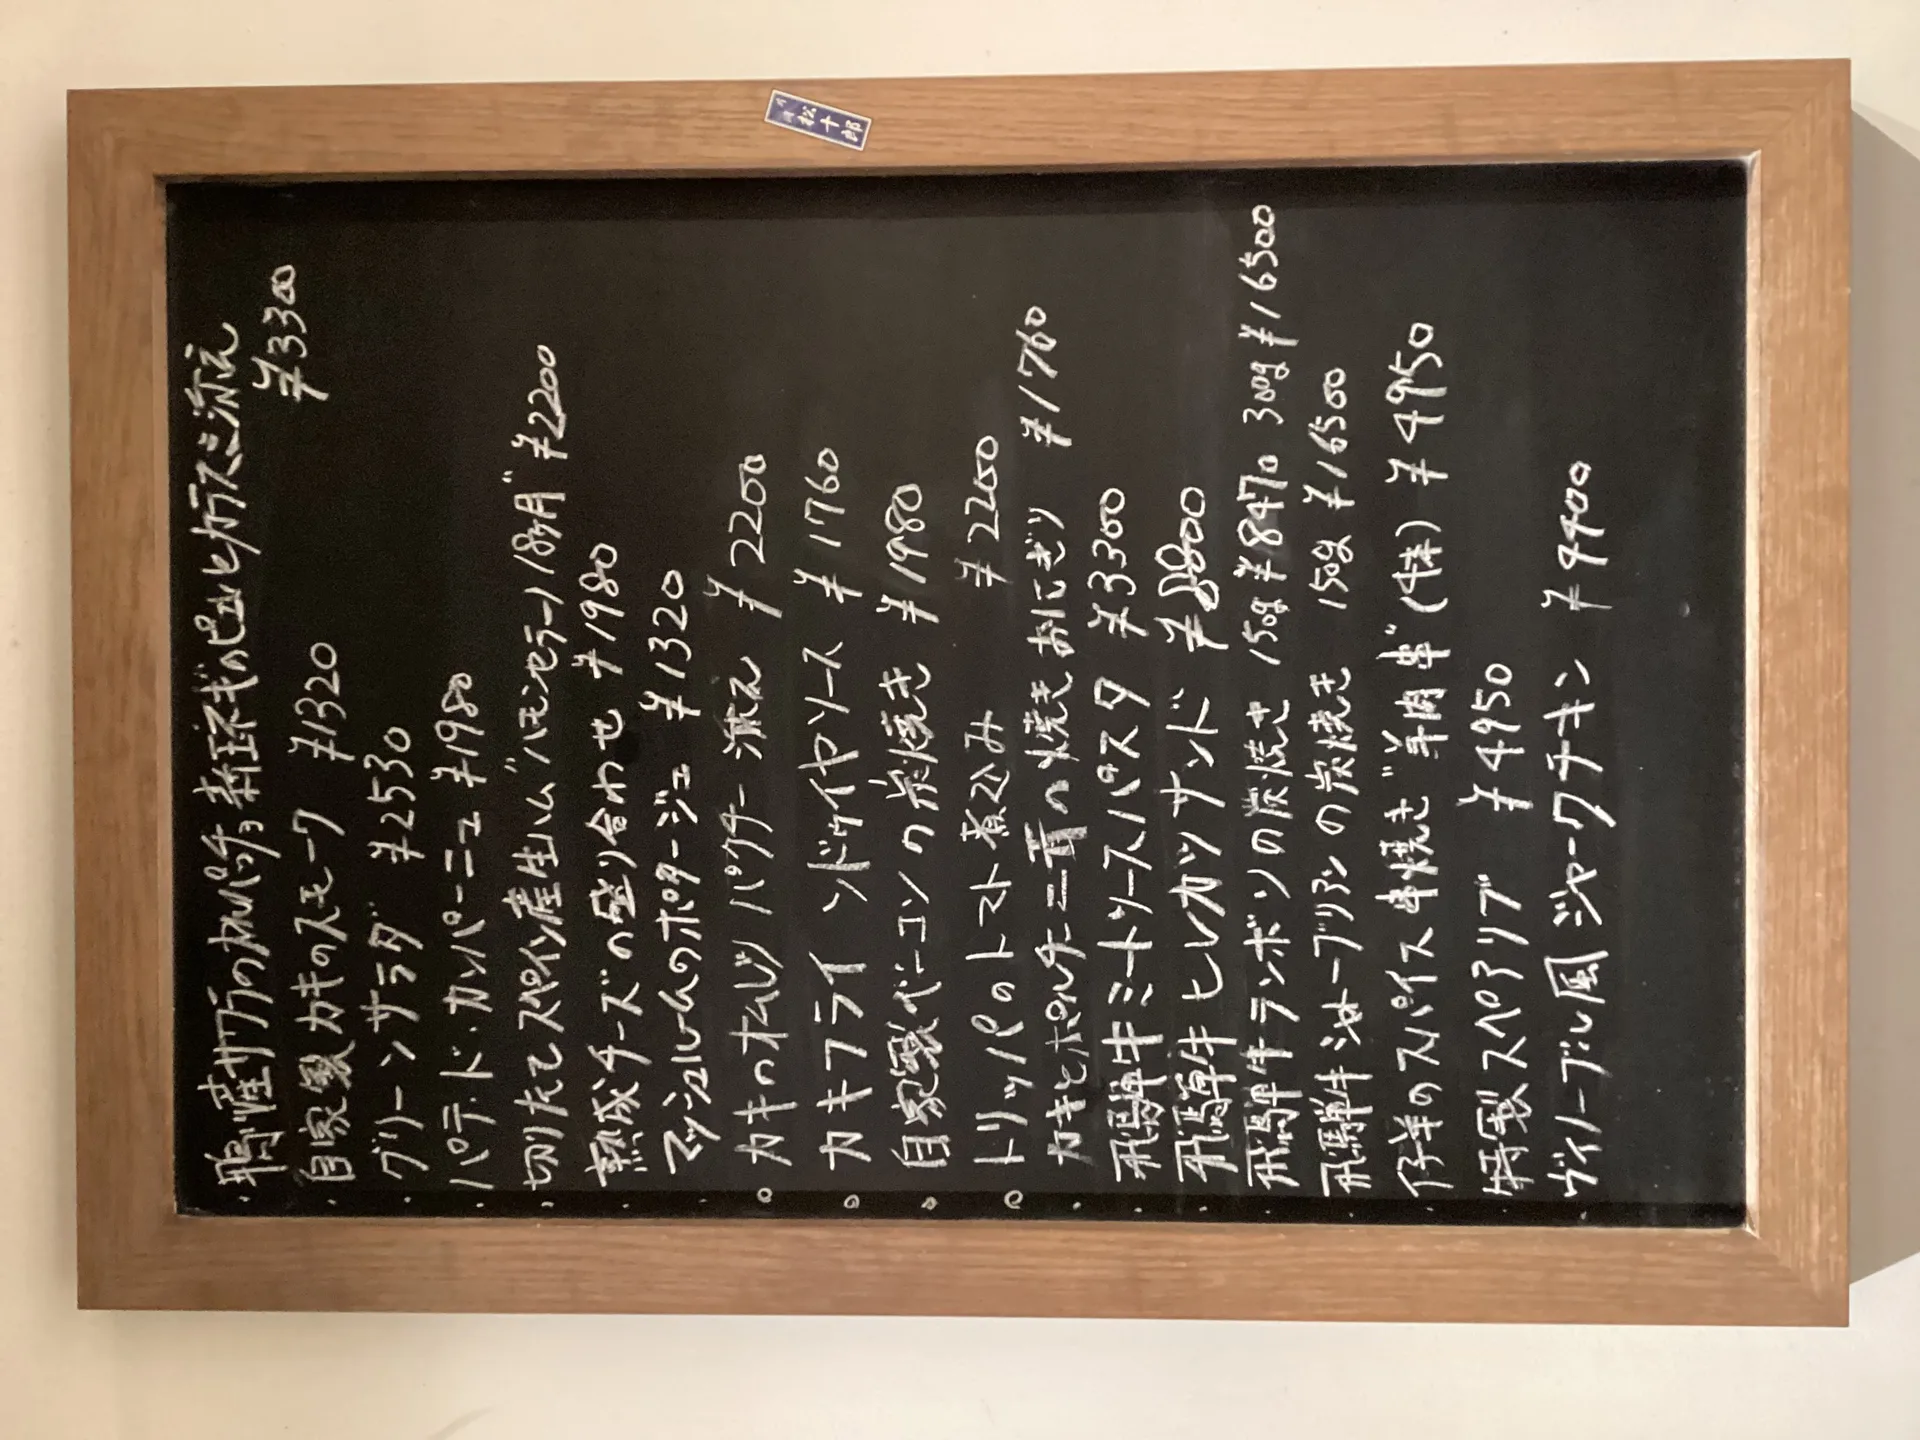 ・鴨産サワラのカルパッチョ 新玉ネギのピュレとカラスミ添え
¥3300
・自家製カキのスモーク ¥1320
・グリーンサラダ ¥2530
・パテ・ド・カンパーニュ ¥1980
・切りたてスペイン産生ハム"ハモンセラーノ18ヶ月" ¥2200
・熟成チーズの盛り合わせ ¥1980
・マッシュルームのポタージュ ¥1320
○カキのオムレツ パクチー添え ¥2200
○カキフライ ンドゥイヤソース ¥1760
○自家製ベーコンの炭焼き ¥1980
○トリッパのトマト煮込み ¥2200
・カキとポルチーニ茸の焼きおにぎり ¥1760
・飛騨牛ミートソースパスタ ¥3300
・飛騨牛ヒレカツサンド ¥8800
・飛騨牛ランボソの炭焼き 150g ¥8470 300g ¥16500
・飛騨牛シャトーブリアンの炭焼き 150g ¥16500
・仔羊のスパイス串焼き"羊肉串"(4本) ¥4950
・特製スペアリブ ¥4950
・ヴィノーブル風ジャークチキン ¥4400
松十郎